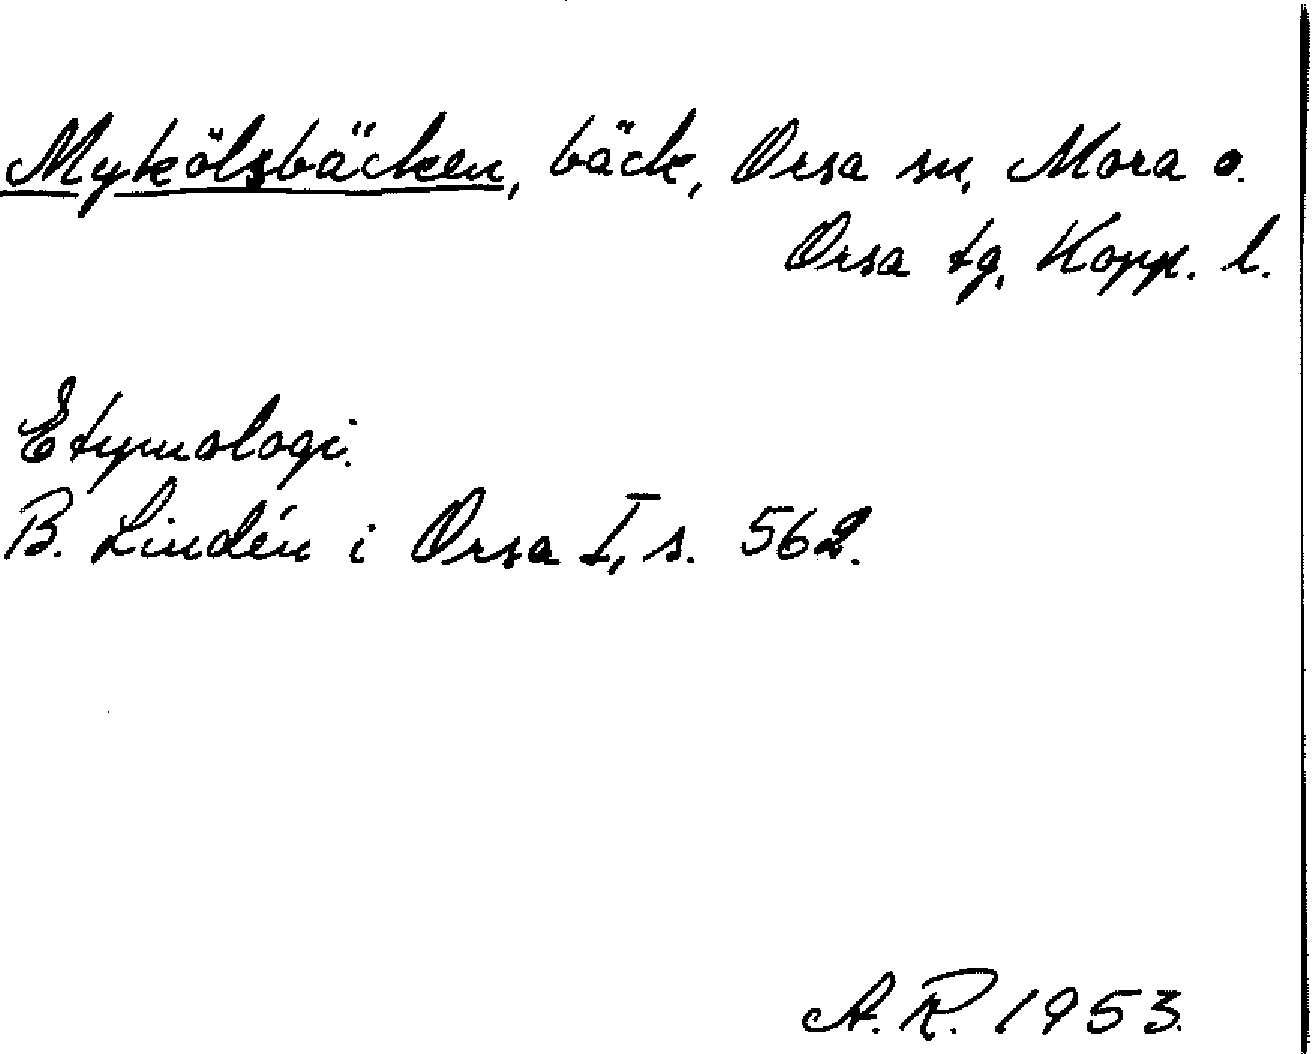 Mykölsbäcken, bäck, Orsa sn, Mora o.
Orsa tg, Kopp. l.
Etymologi.
B. Lindén i Orsa I, s. 562.
A.R. 1953.